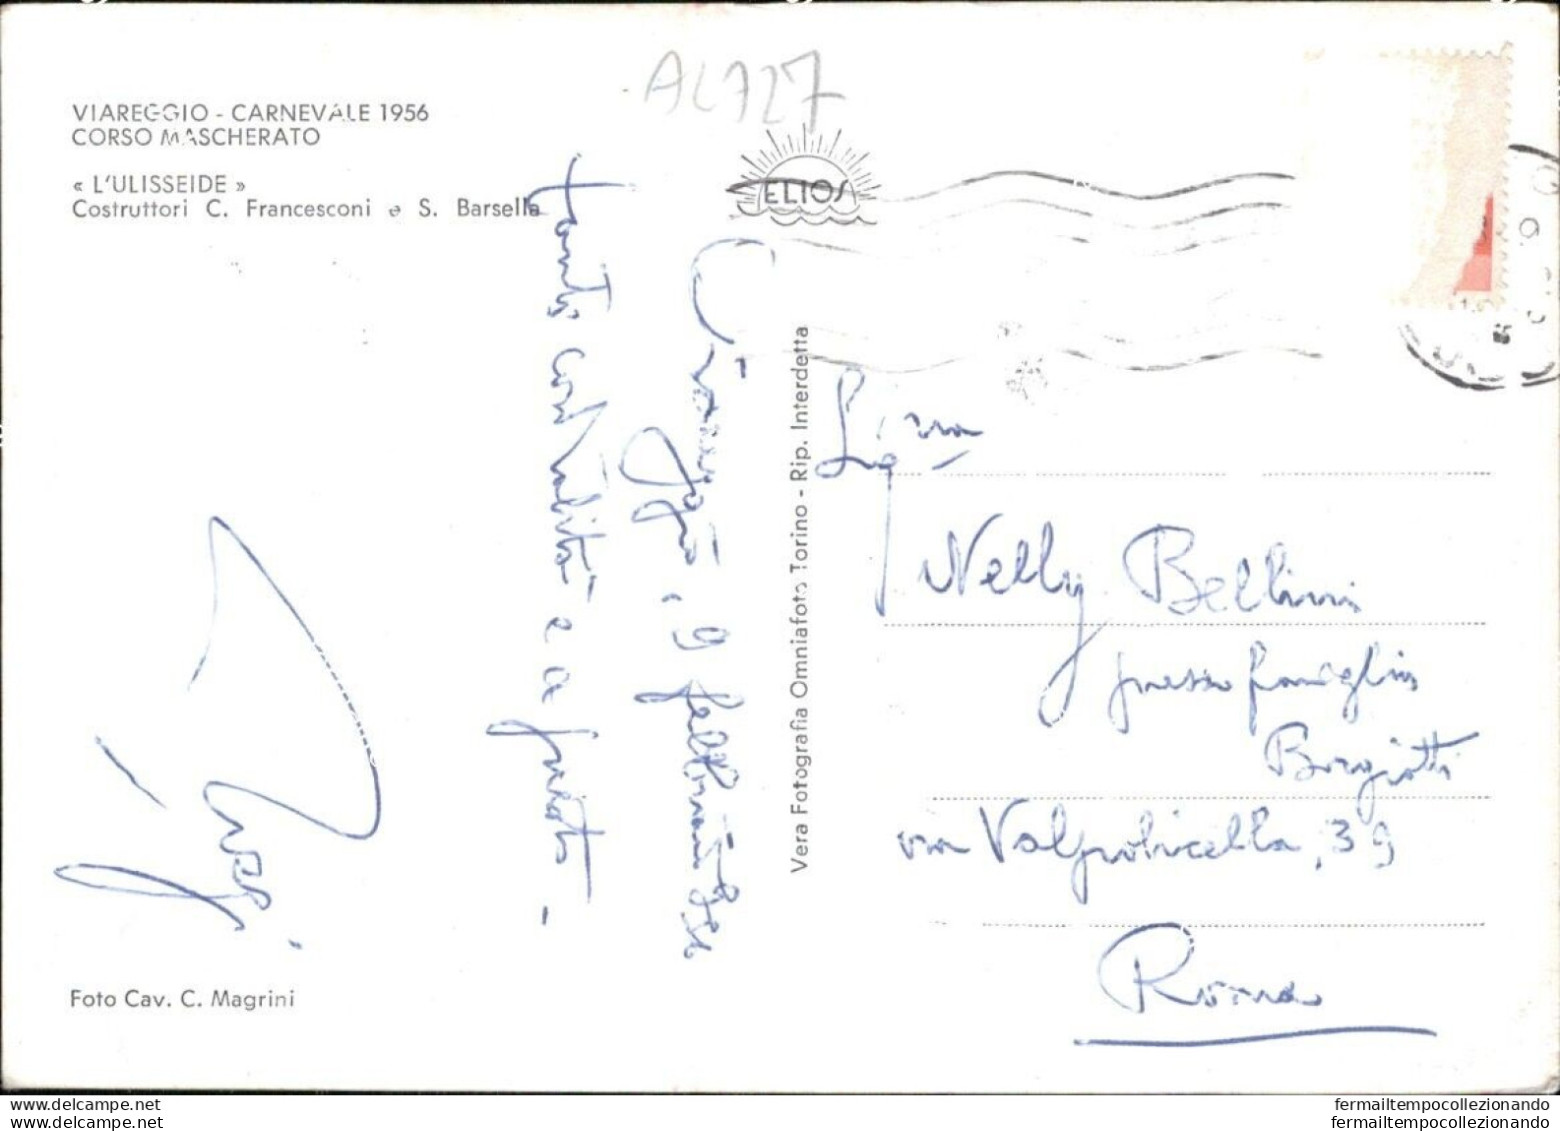 VIAREGGIO - CARNEVALE 1956
CORSO MASCHERATO
« L'ULISSEIDE »
Costruttori C. Francesconi e S. Barsella
AL727
ELIOS
Viareggio, 9 febbraio 956
tante cordialità e a presto -
Foto Cav. C. Magrini
Vera Fotografia Omniafoto Torino - Rip. Interdetta
Sig.na
Nelly Bellini
presso famiglia
Borgiotti
via Valpolicella, 39
Roma
www.delcampe.net
fermailtempocollezionando
www.delcampe.net
fermailtempocollezionando